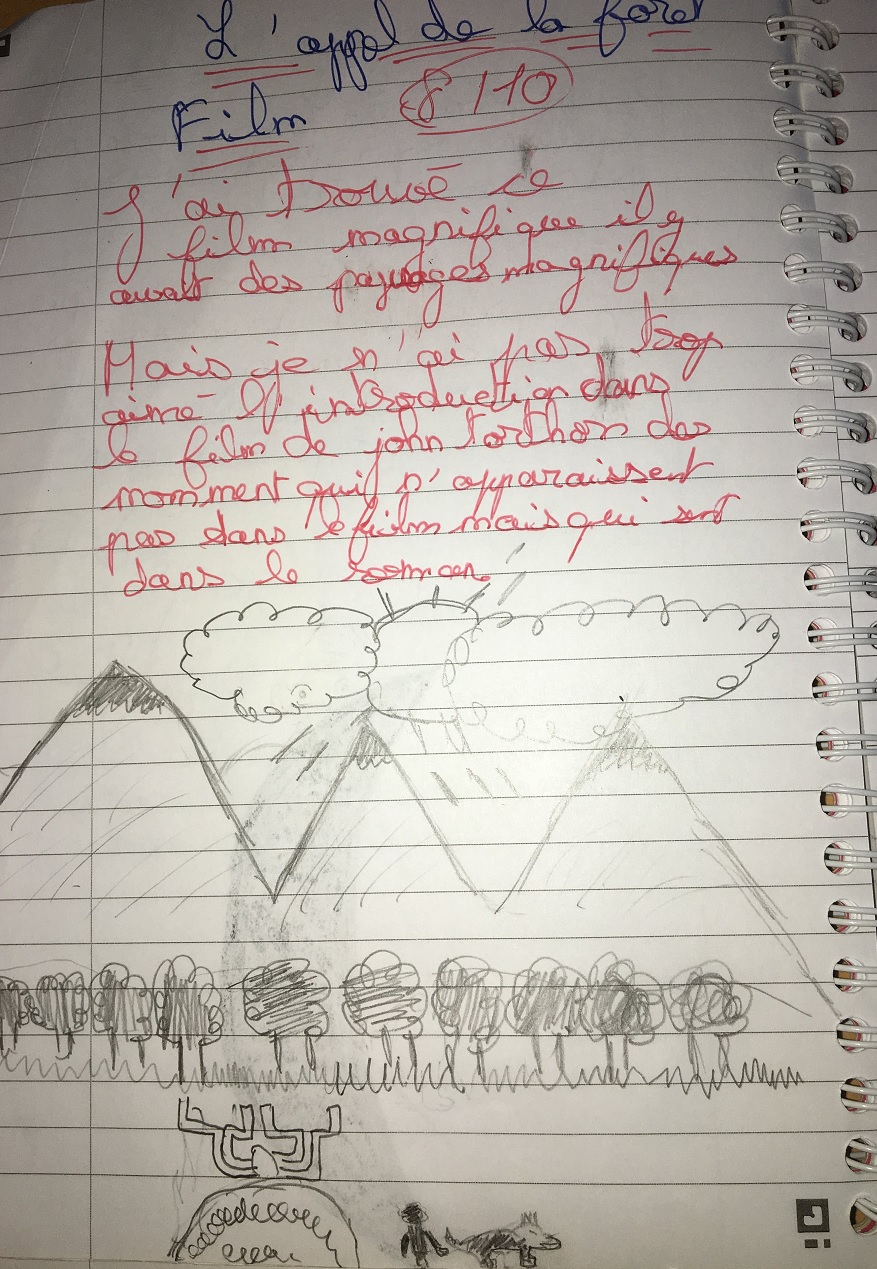 L'appel de la foret
Film 8/10
J'ai trouvé ce
film magnifique il y
avait des paysages magnifiques
Mais je n'ai pas trop
aimé l'introduction dans
le film de john torthon des
momment qui n'apparaissent
pas dans le film mais qui sont
dans le roman.